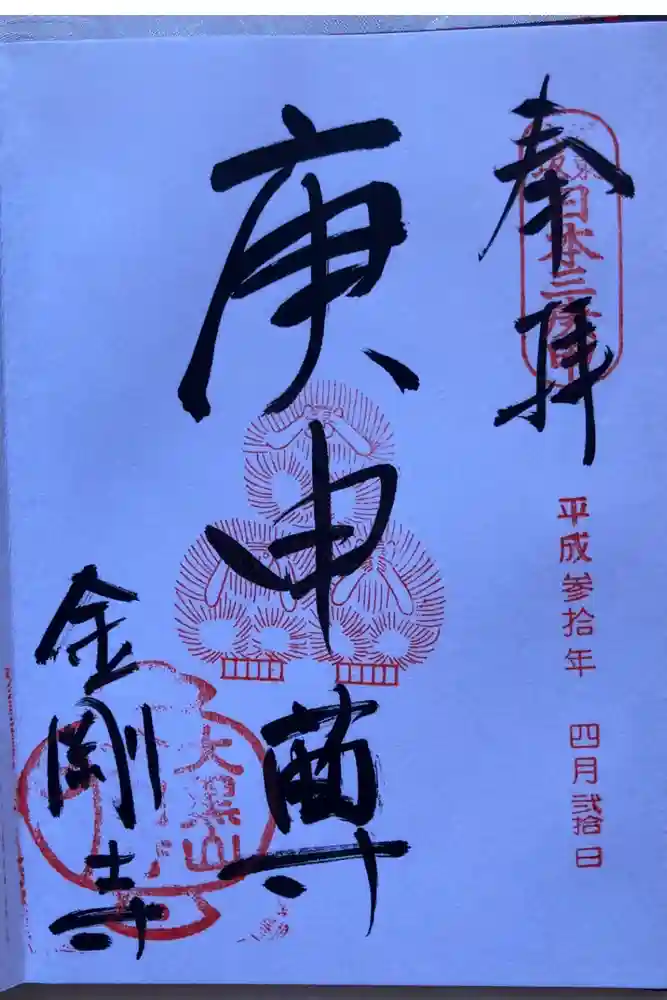 奉拝
日本三庚申
平成参拾年 四月弐拾日
庚申尊
大黒山
金剛寺